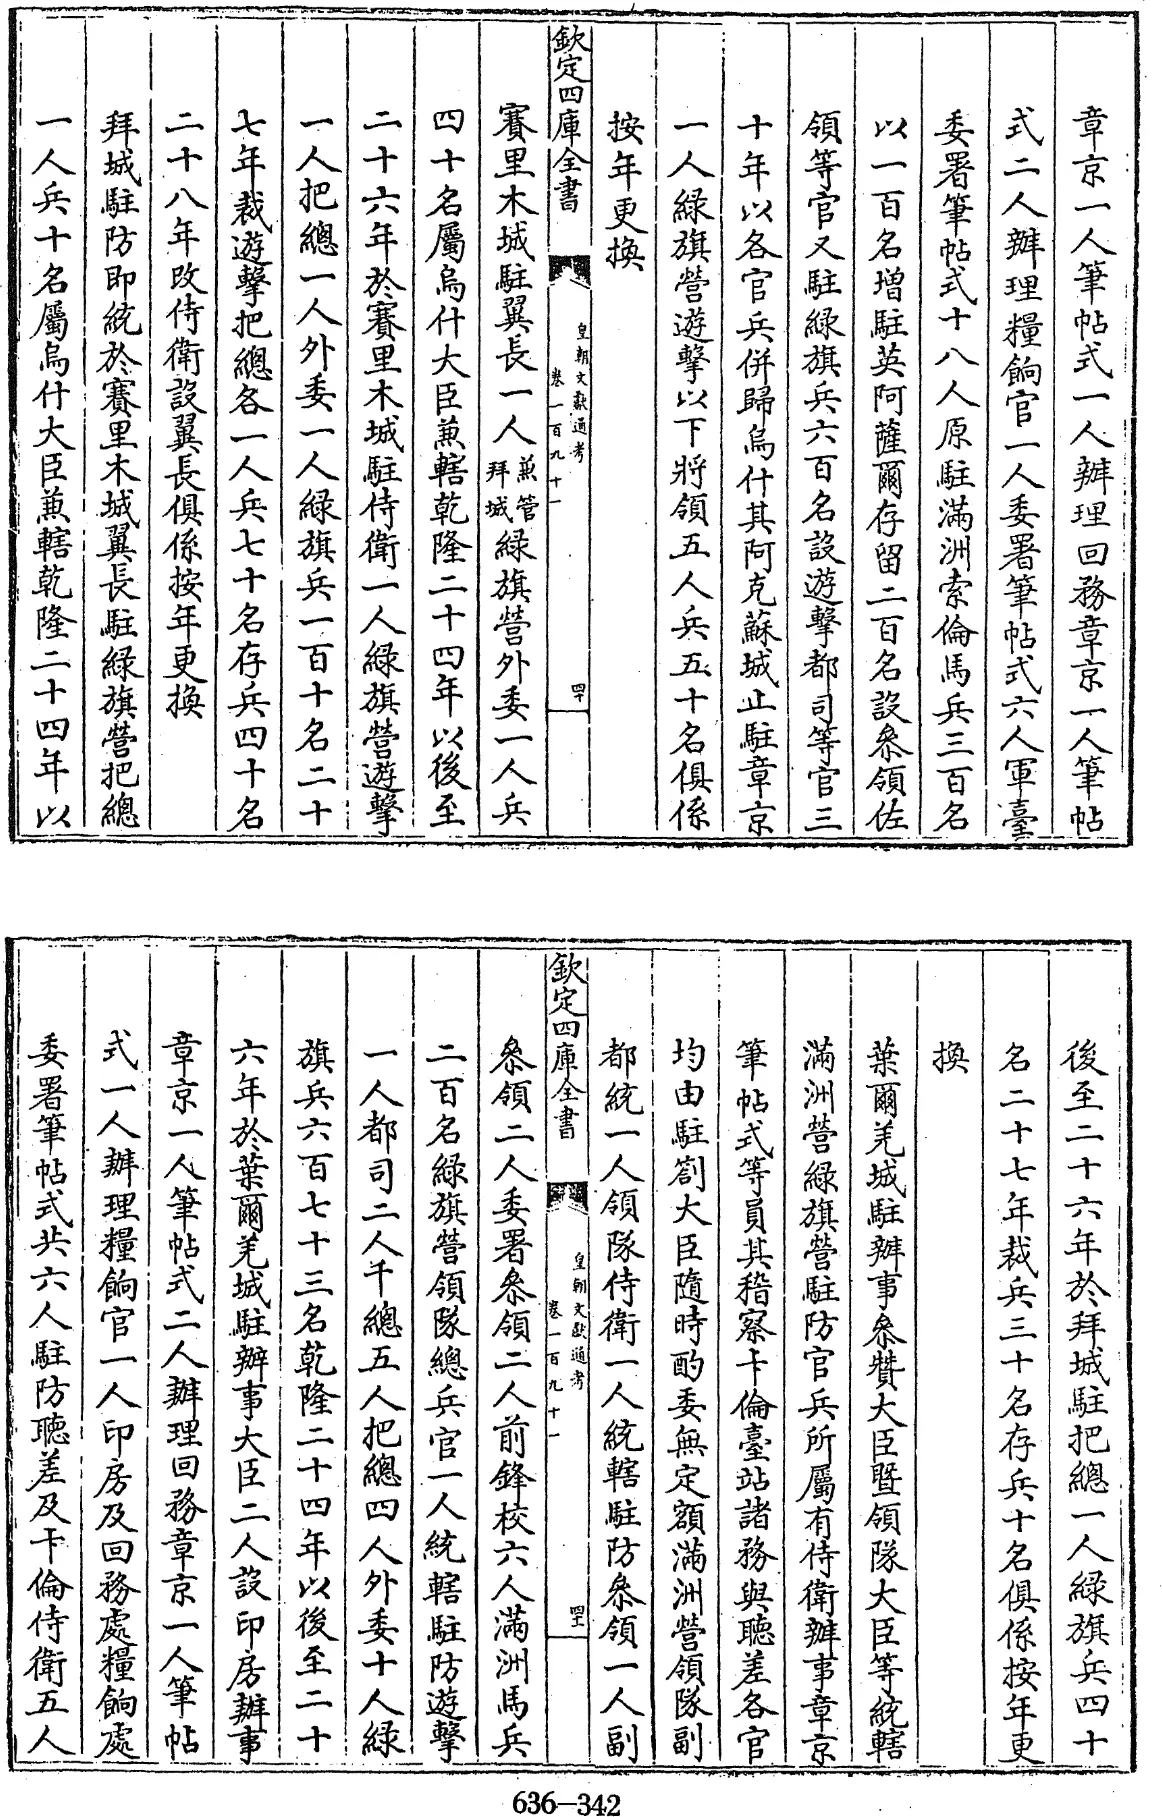 章京一人筆帖式一人辦理回務章京一人筆帖
式二人辦理糧餉官一人委署筆帖式六人軍臺
委署筆帖式十八人原駐滿洲索倫馬兵三百名
以一百名增駐英阿薩爾存留二百名設叅領佐
領等官又駐綠旗兵六百名設遊擊都司等官三
十年以各官兵併歸烏什其阿克蘇城止駐章京
一人綠旗營遊擊以下將領五人兵五十名俱係
按年更換
欽定四庫全書
皇朝文獻通考
卷一百九十一
四十
賽里木城駐翼長一人兼管拜城綠旗營外委一人兵
四十名屬烏什大臣兼轄乾隆二十四年以後至
二十六年於賽里木城駐侍衛一人綠旗營遊擊
一人把總一人外委一人綠旗兵一百十名二十
七年裁遊擊把總各一人兵七十名存兵四十名
二十八年改侍衛設翼長俱係按年更換
拜城駐防即統於賽里木城翼長駐綠旗營把總
一人兵十名屬烏什大臣兼轄乾隆二十四年以
後至二十六年於拜城駐把總一人綠旗兵四十
名二十七年裁兵三十名存兵十名俱係按年更
換
葉爾羌城駐辦事叅贊大臣暨領隊大臣等統轄
滿洲營綠旗營駐防官兵所屬有侍衛辦事章京
筆帖式等員其稽察卡倫臺站諸務與聽差各官
均由駐劄大臣隨時酌委無定額滿洲營領隊副
都統一人領隊侍衛一人統轄駐防叅領一人副
欽定四庫全書
皇朝文獻通考
卷一百九十一
四十一
叅領二人委署叅領二人前鋒校六人滿洲馬兵
二百名綠旗營領隊總兵官一人統轄駐防遊擊
一人都司二人千總五人把總四人外委十人綠
旗兵六百七十三名乾隆二十四年以後至二十
六年於葉爾羌城駐辦事大臣二人設印房辦事
章京一人筆帖式二人辦理回務章京一人筆帖
式一人辦理糧餉官一人印房及回務處糧餉處
委署筆帖式共六人駐防聽差及卡倫侍衛五人
636—342